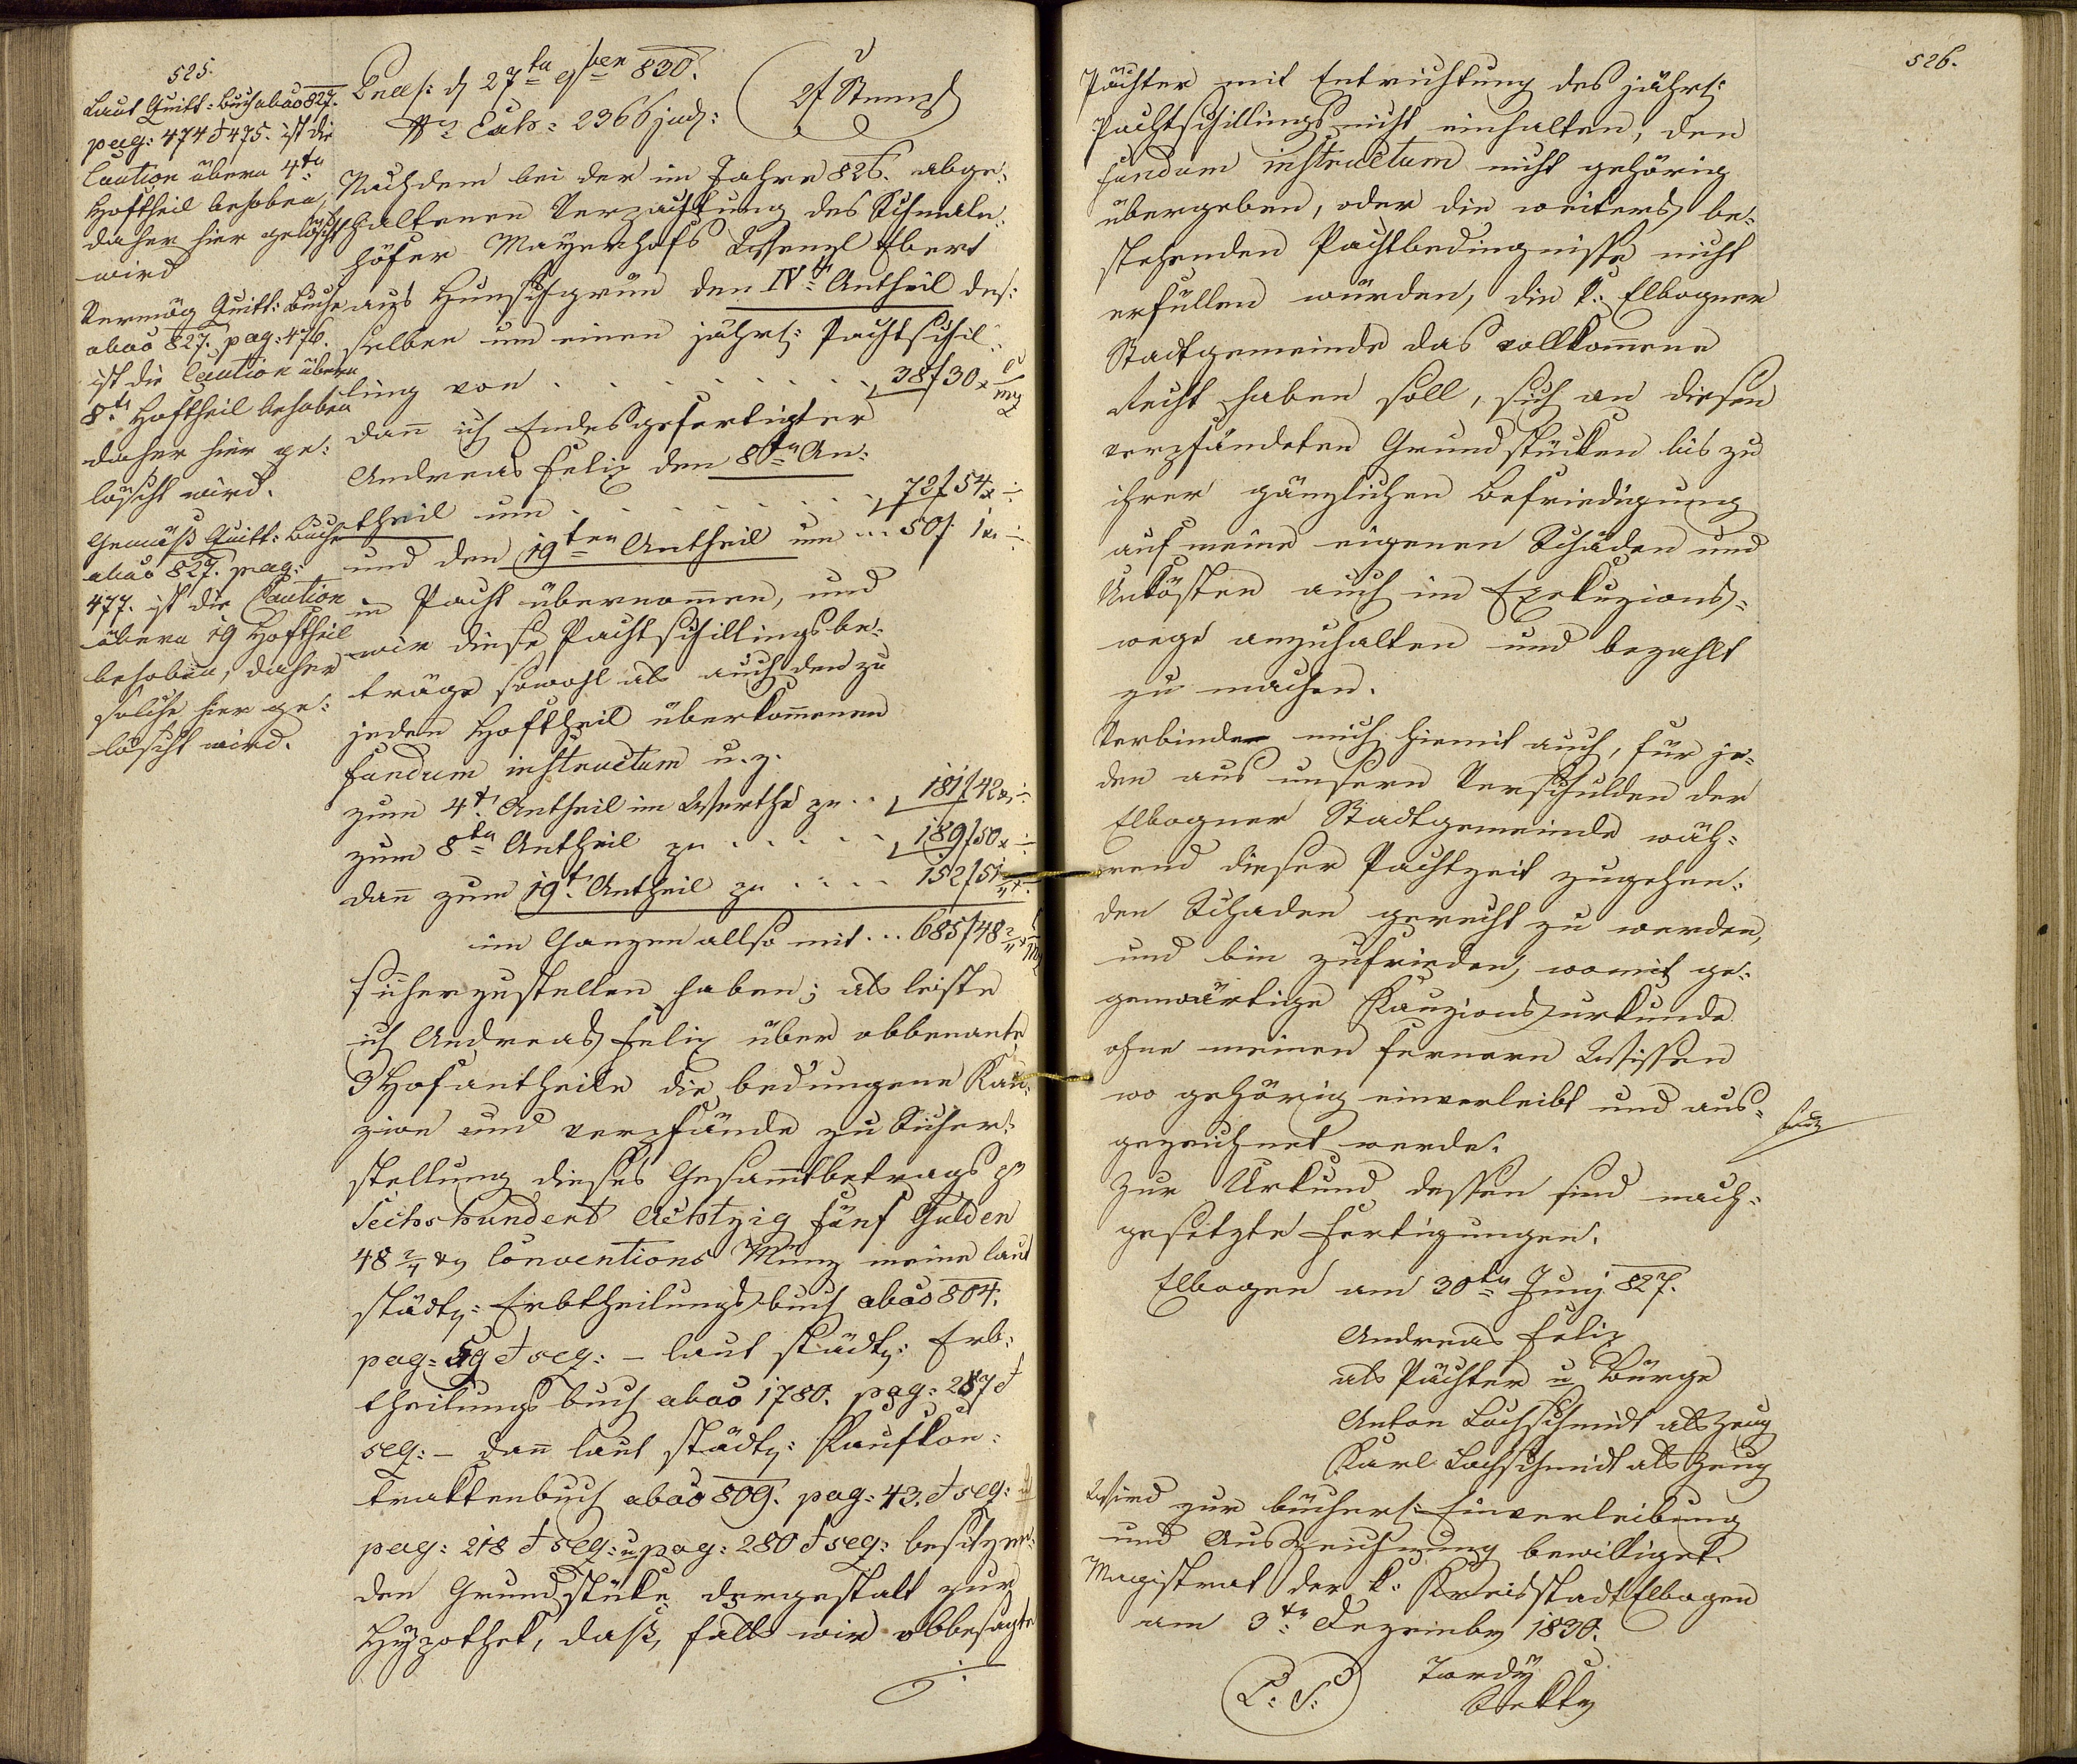 525.
Laut Quitt: Buch ab ao 827.
pag: 474 & 475. ist die
Caution übern 4tn
Hoftheil behoben,
daher hier gelöscht
wird
Vermög Quitt: Buch
ab ao 827. pag: 476.
ist die Caution übern
8tn Hoftheil behoben
daher hier ge:
löscht wird.
Gemäß Quitt: Buch
ab ao 827. pag:
477. ist die Caution
übern 19 Hoftheil
behoben, daher
solche hier ge:
löscht wird.
Praes: d 27tn 9ber 830.
2f Stempl
Nro Exh: 2366 jud:
Nachdem bei der im Jahre 826. abge:
haltenen Verpachtung des Schmeln:
höfer Mayerhofs Wenzl Ebert
aus Hunschgrün den IVt Antheil des:
selben um einen jährl: Pachtschil:
ling von . . . . . . . . . 38f 30x
dann ich Endesgefertigter
Andreas Felix den 8tn An:
theil um . . . . . . . 72f 54x
und den 19ten Antheil um ... 50f 1x
in Pacht übernommen, und
wir diese Pachtschillingsbe:
träge sowohl als auch den zu
jeden Hoftheil überkommenen
fundum instructum u. z.
zum 4t Antheil im Werthe zu . . 181f 42x
zum 8tn Antheil zu . . . . . 189f 50x
dann zum 19t Antheil zu . . . . 152f 51
im Ganzen allso mit . . . 685f 48 2/4
sicherzustellen haben; als leiste
ich Andreas Felix über obbenante
3 Hofantheile die bedungene Kau:
zion und verpfände zu Sicher:
stellung dieses Gesammtbetrags pr
Sechshundert Achtzig fünf Gulden
48 2/4 xr Conventions Münz meine laut
städt: Erbtheilungsbuch ab ao 804.
pag: 59 & seq: – laut städt: Erb:
theilungsbuch ab ao 1780. pag: 287 &
seq: – dann laut städt: Kaufkon:
traktenbuch ab ao 809. pag: 43. & seq:
pag: 218 & seq: u pag: 280 & seq: besitzen:
den Grundstüke dergestalt zur
Hypothek, daß, falls wir obbesagte
526.
Pächter mit Entrichtung des jährl:
Pachtschillings nicht einhalten, den
fundum instructum nicht gehörig
übergeben, oder die weiters be:
stehenden Pachtbedingnisse nicht
erfüllen würden, die k: Elbogner
Stadtgemeinde das vollkommene
Recht haben soll, sich an diesen
verpfändeten Grundstücken bis zu
ihrer gänzlichen Befriedigung
auf meine eigenen Schäden und
Unkösten auch im Exekuzions:
wege anzuhalten und bezahlt
zu machen.
Verbinde mich hiemit auch, für je:
den aus unsern Verschulden der
Elbogner Stadtgemeinde wäh:
rend dieser Pachtzeit zugehen:
den Schaden gerecht zu werden,
und bin zufrieden, womit ge:
genwärtige Kauzionsurkunde
ohne meinen fernern Wissen
wo gehörig einverleibt und aus:
gezeichnet werde.
Zur Urkund dessen sind nach:
gesetzte Fertigungen.
Elbogen am 30tn Juny 827.
Andreas Felix
als Pächter u Bürge
Anton Lochschmidt als Zeug
Karl Lochschmidt als Zeug
Wird zur bücherl: Einverleibung
und Auszeichnung bewilliget.
Magistrat der k: Kreisstadt Elbogen
am 3tn Dezember 1830.
L: S:
Tordy